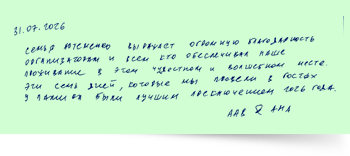 31.07.2026
семья выражает огромную благодарность
организаторам и всем кто обеспечивал наше
проживание в этом чувственном и волшебном месте.
Эти семь дней, которые мы провели в гостях
у были лучшим приключением 2026 года.